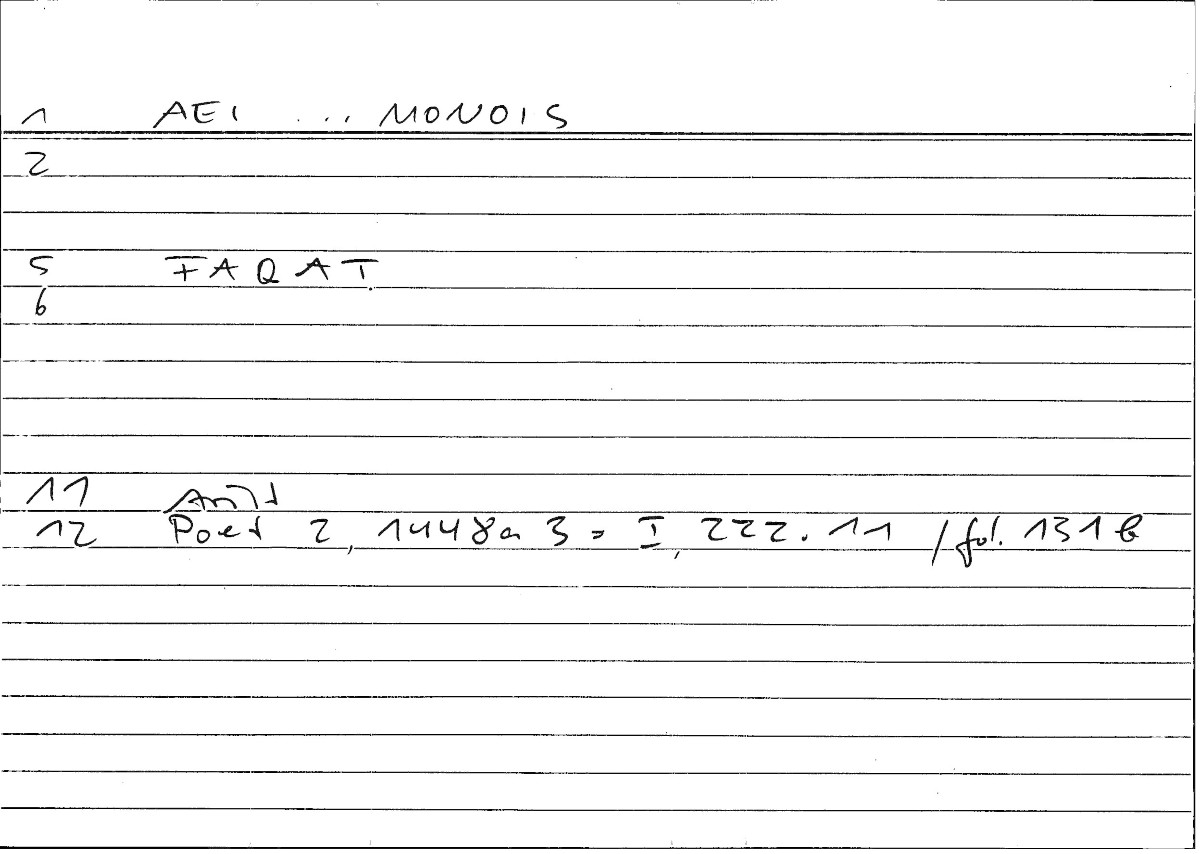 1 AEI ... MONOIS
2
5 FAQAT
6
11 Arist
12 Poet 2, 1448a 3 = I, 222.11 / fol. 131b